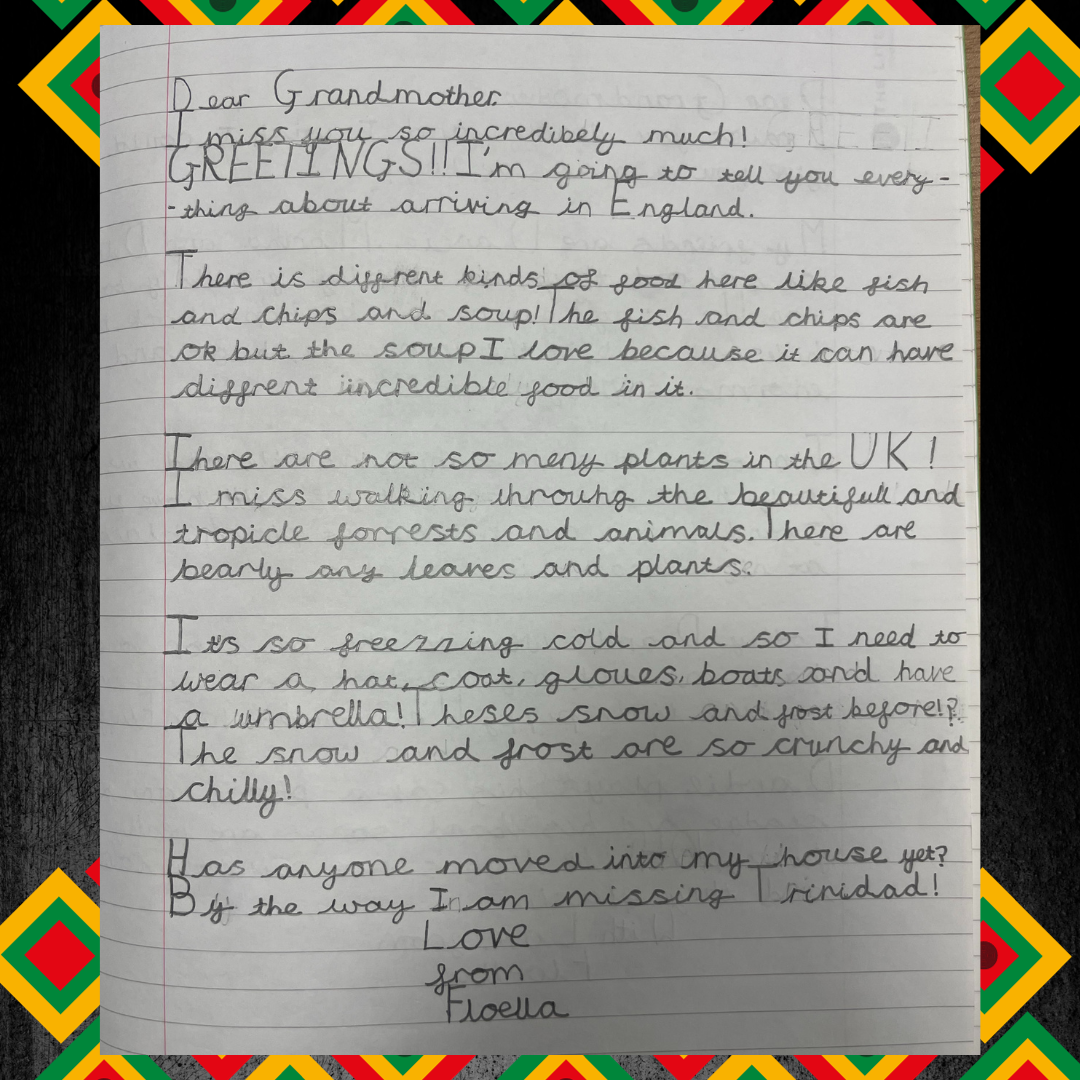 Dear Grandmother
I miss you so incredibely much!
GREETINGS!! I'm going to tell you every-
-thing about arriving in England.
There is diffrent kinds of food here like fish
and chips and soup! The fish and chips are
ok but the soup I love because it can have
diffrent incredible food in it.
There are not so meny plants in the UK!
I miss walking throuhg the beautifull and
tropicle forrests and animals. There are
bearly any leaves and plants.
It's so freezzing cold and so I need to
wear a hat, coat, gloves, boats and have
a umbrella! Theses snow and frost before!?
The snow and frost are so crunchy and
chilly!
Has anyone moved into my house yet?
By the way I am missing Trinidad!
Love
from
Floella